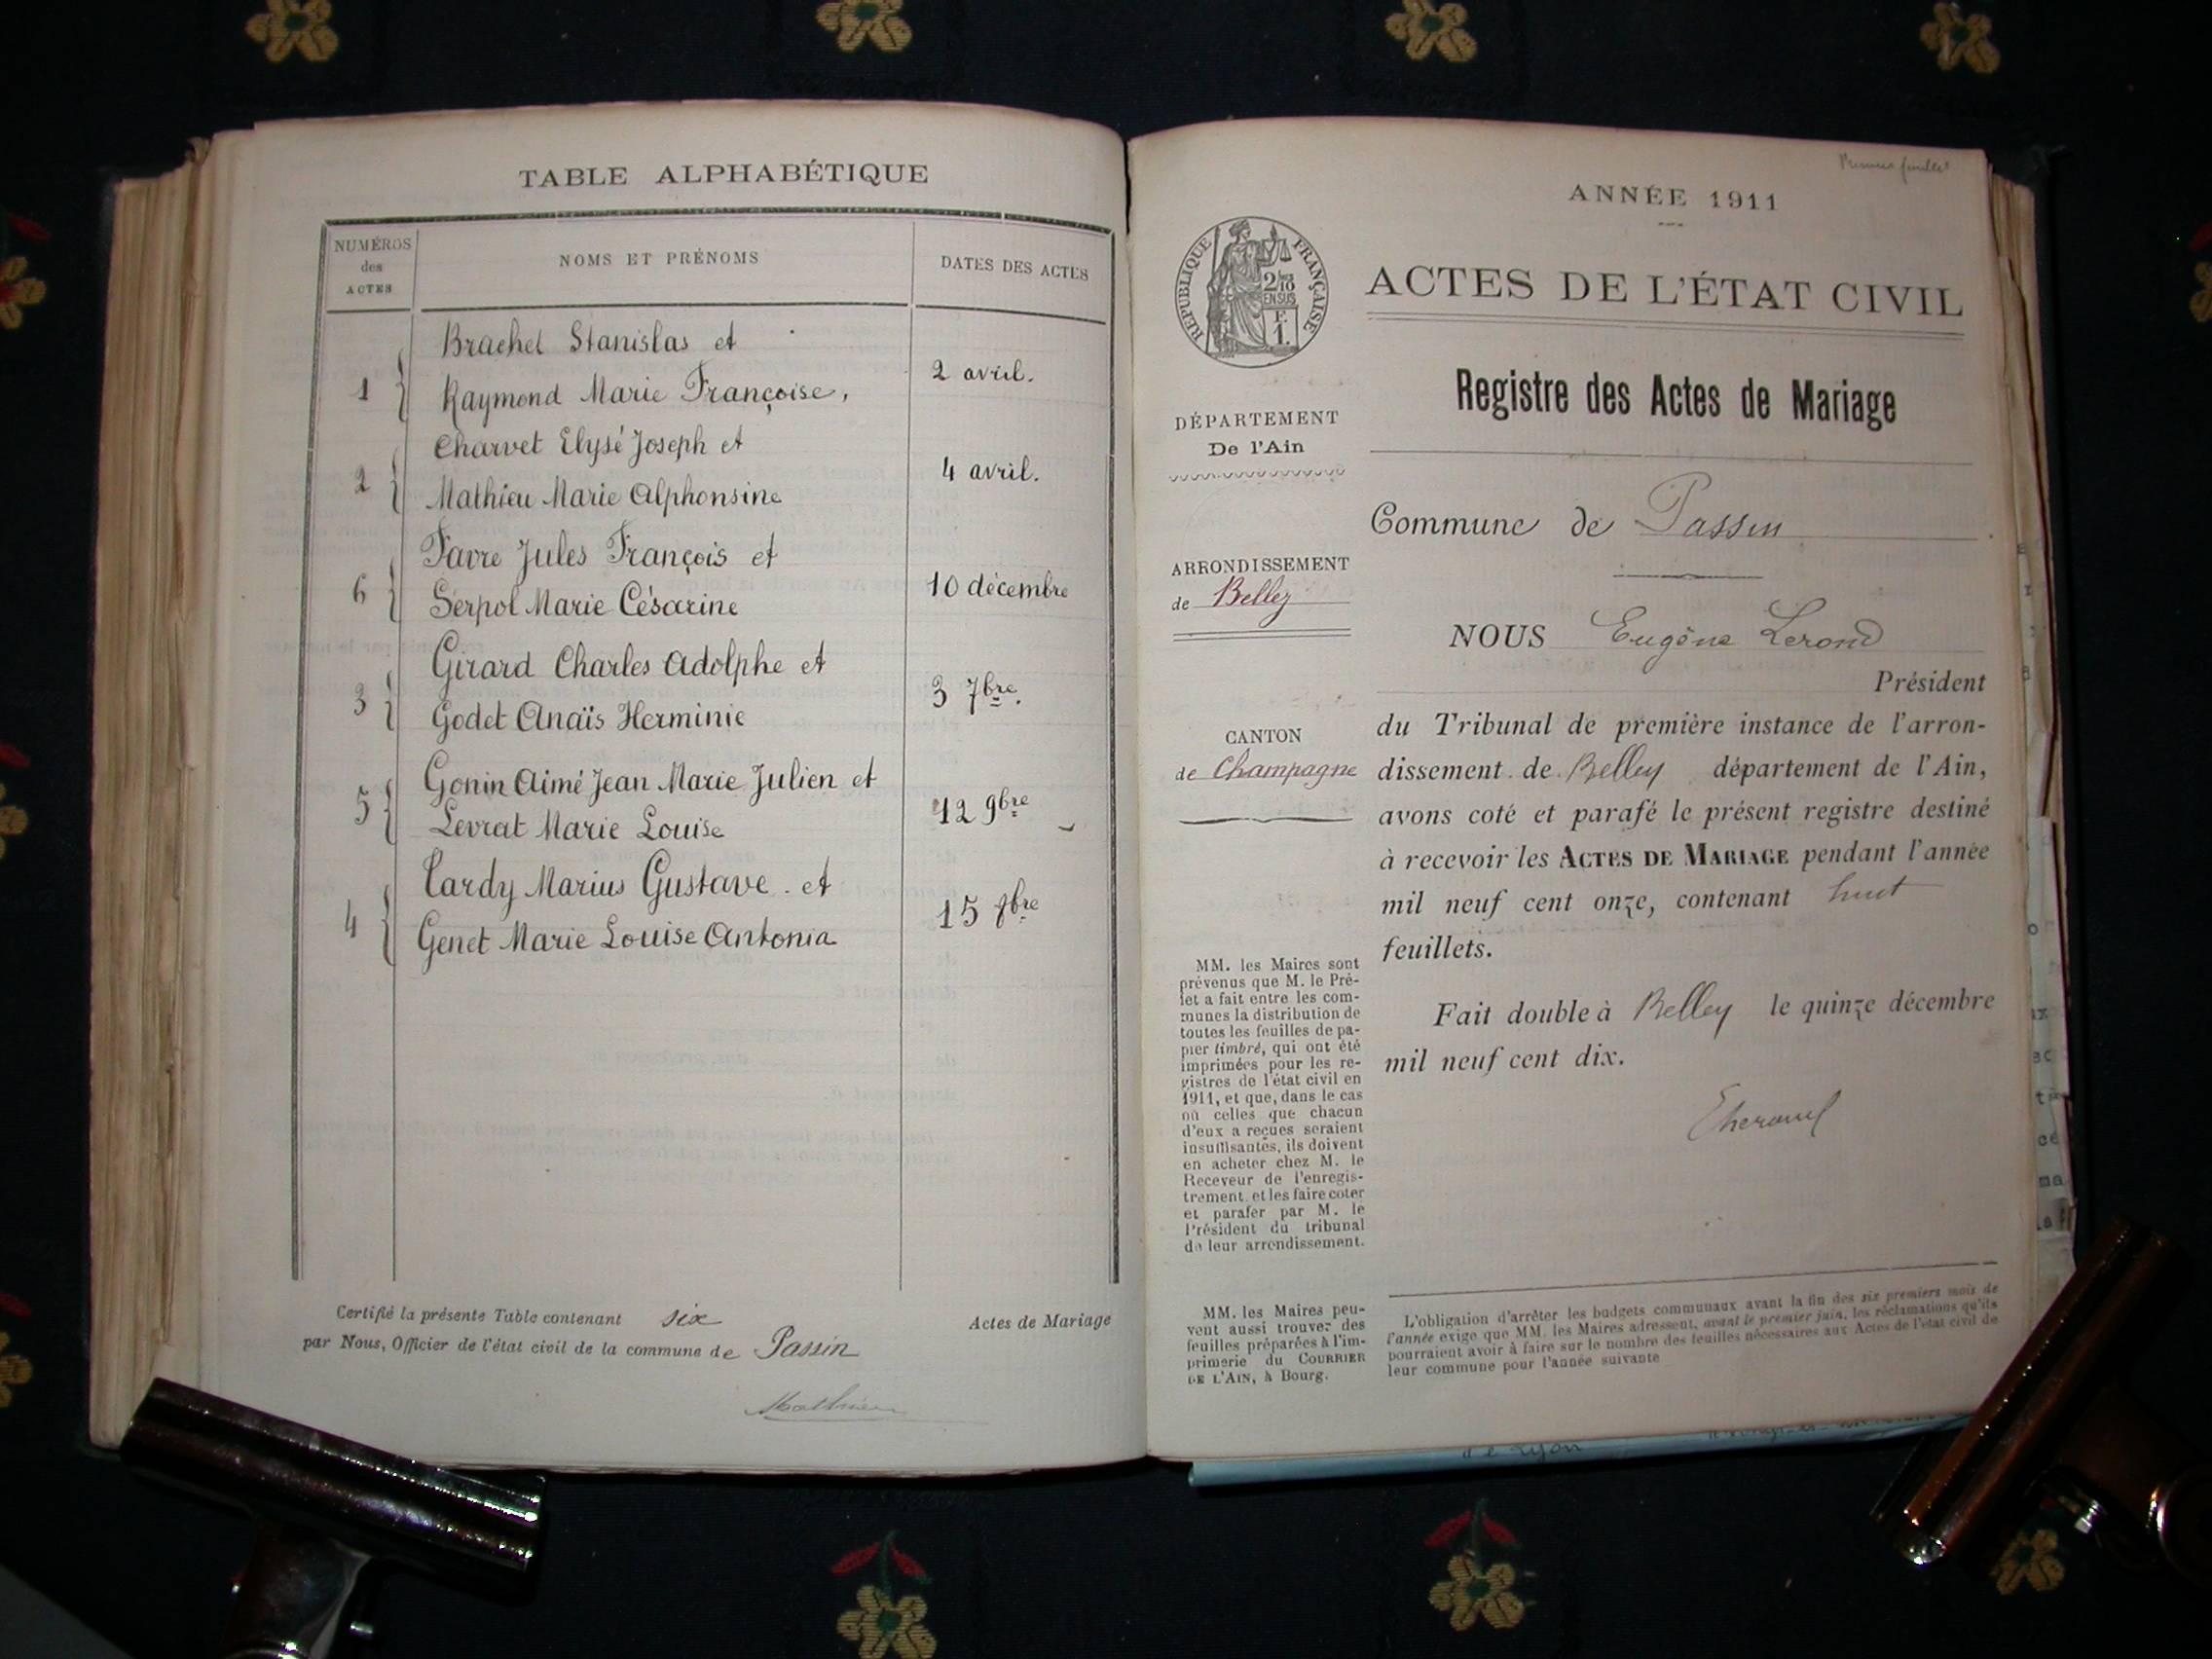 TABLE ALPHABÉTIQUE
NUMÉROS
des
ACTES
NOMS ET PRÉNOMS
DATES DES ACTES
Brachet Stanislas et
1 { Raymond Marie Françoise, 2 avril.
Charvet Elysé Joseph et
2 { Mathieu Marie Alphonsine 4 avril.
Favre Jules François et
6 { Serpol Marie Césarine 10 décembre
Girard Charles Adolphe et
3 { Godet Anaïs Herminie 3 7bre.
Gonin Aimé Jean Marie Julien et
5 { Levrat Marie Louise 12 9bre
Tardy Marius Gustave . et
4 { Genet Marie Louise Antonia 15 8bre
Certifié la présente Table contenant six Actes de Mariage
par Nous, Officier de l'état civil de la commune de Passin
Mathieu
ANNÉE 1911
RÉPUBLIQUE FRANÇAISE
EN SUS
F.
1.
ACTES DE L'ÉTAT CIVIL
Registre des Actes de Mariage
DÉPARTEMENT
De l'Ain
ARRONDISSEMENT
de Belley
CANTON
de Champagne
MM. les Maires sont
prévenus que M. le Pré-
fet a fait entre les com-
munes la distribution de
toutes les feuilles de pa-
pier timbré, qui ont été
imprimées pour les re-
gistres de l'état civil en
1911, et que, dans le cas
où celles que chacun
d'eux a reçues seraient
insuffisantes, ils doivent
en acheter chez M. le
Receveur de l'enregis-
trement et les faire coter
et parafer par M. le
Président du tribunal
de leur arrondissement.
MM. les Maires peu-
vent aussi trouver des
feuilles préparées à l'im-
primerie du COURRIER
DE L'AIN, à Bourg.
Commune de Passin
NOUS Eugène Lerond
Président
du Tribunal de première instance de l'arron-
dissement de Belley département de l'Ain,
avons coté et parafé le présent registre destiné
à recevoir les ACTES DE MARIAGE pendant l'année
mil neuf cent onze, contenant huit
feuillets.
Fait double à Belley le quinze décembre
mil neuf cent dix.
L'obligation d'arrêter les budgets communaux avant la fin des six premiers mois de
l'année exige que MM. les Maires adressent, avant le premier juin, les réclamations qu'ils
pourraient avoir à faire sur le nombre des feuilles nécessaires aux Actes de l'état civil de
leur commune pour l'année suivante
de Lyon